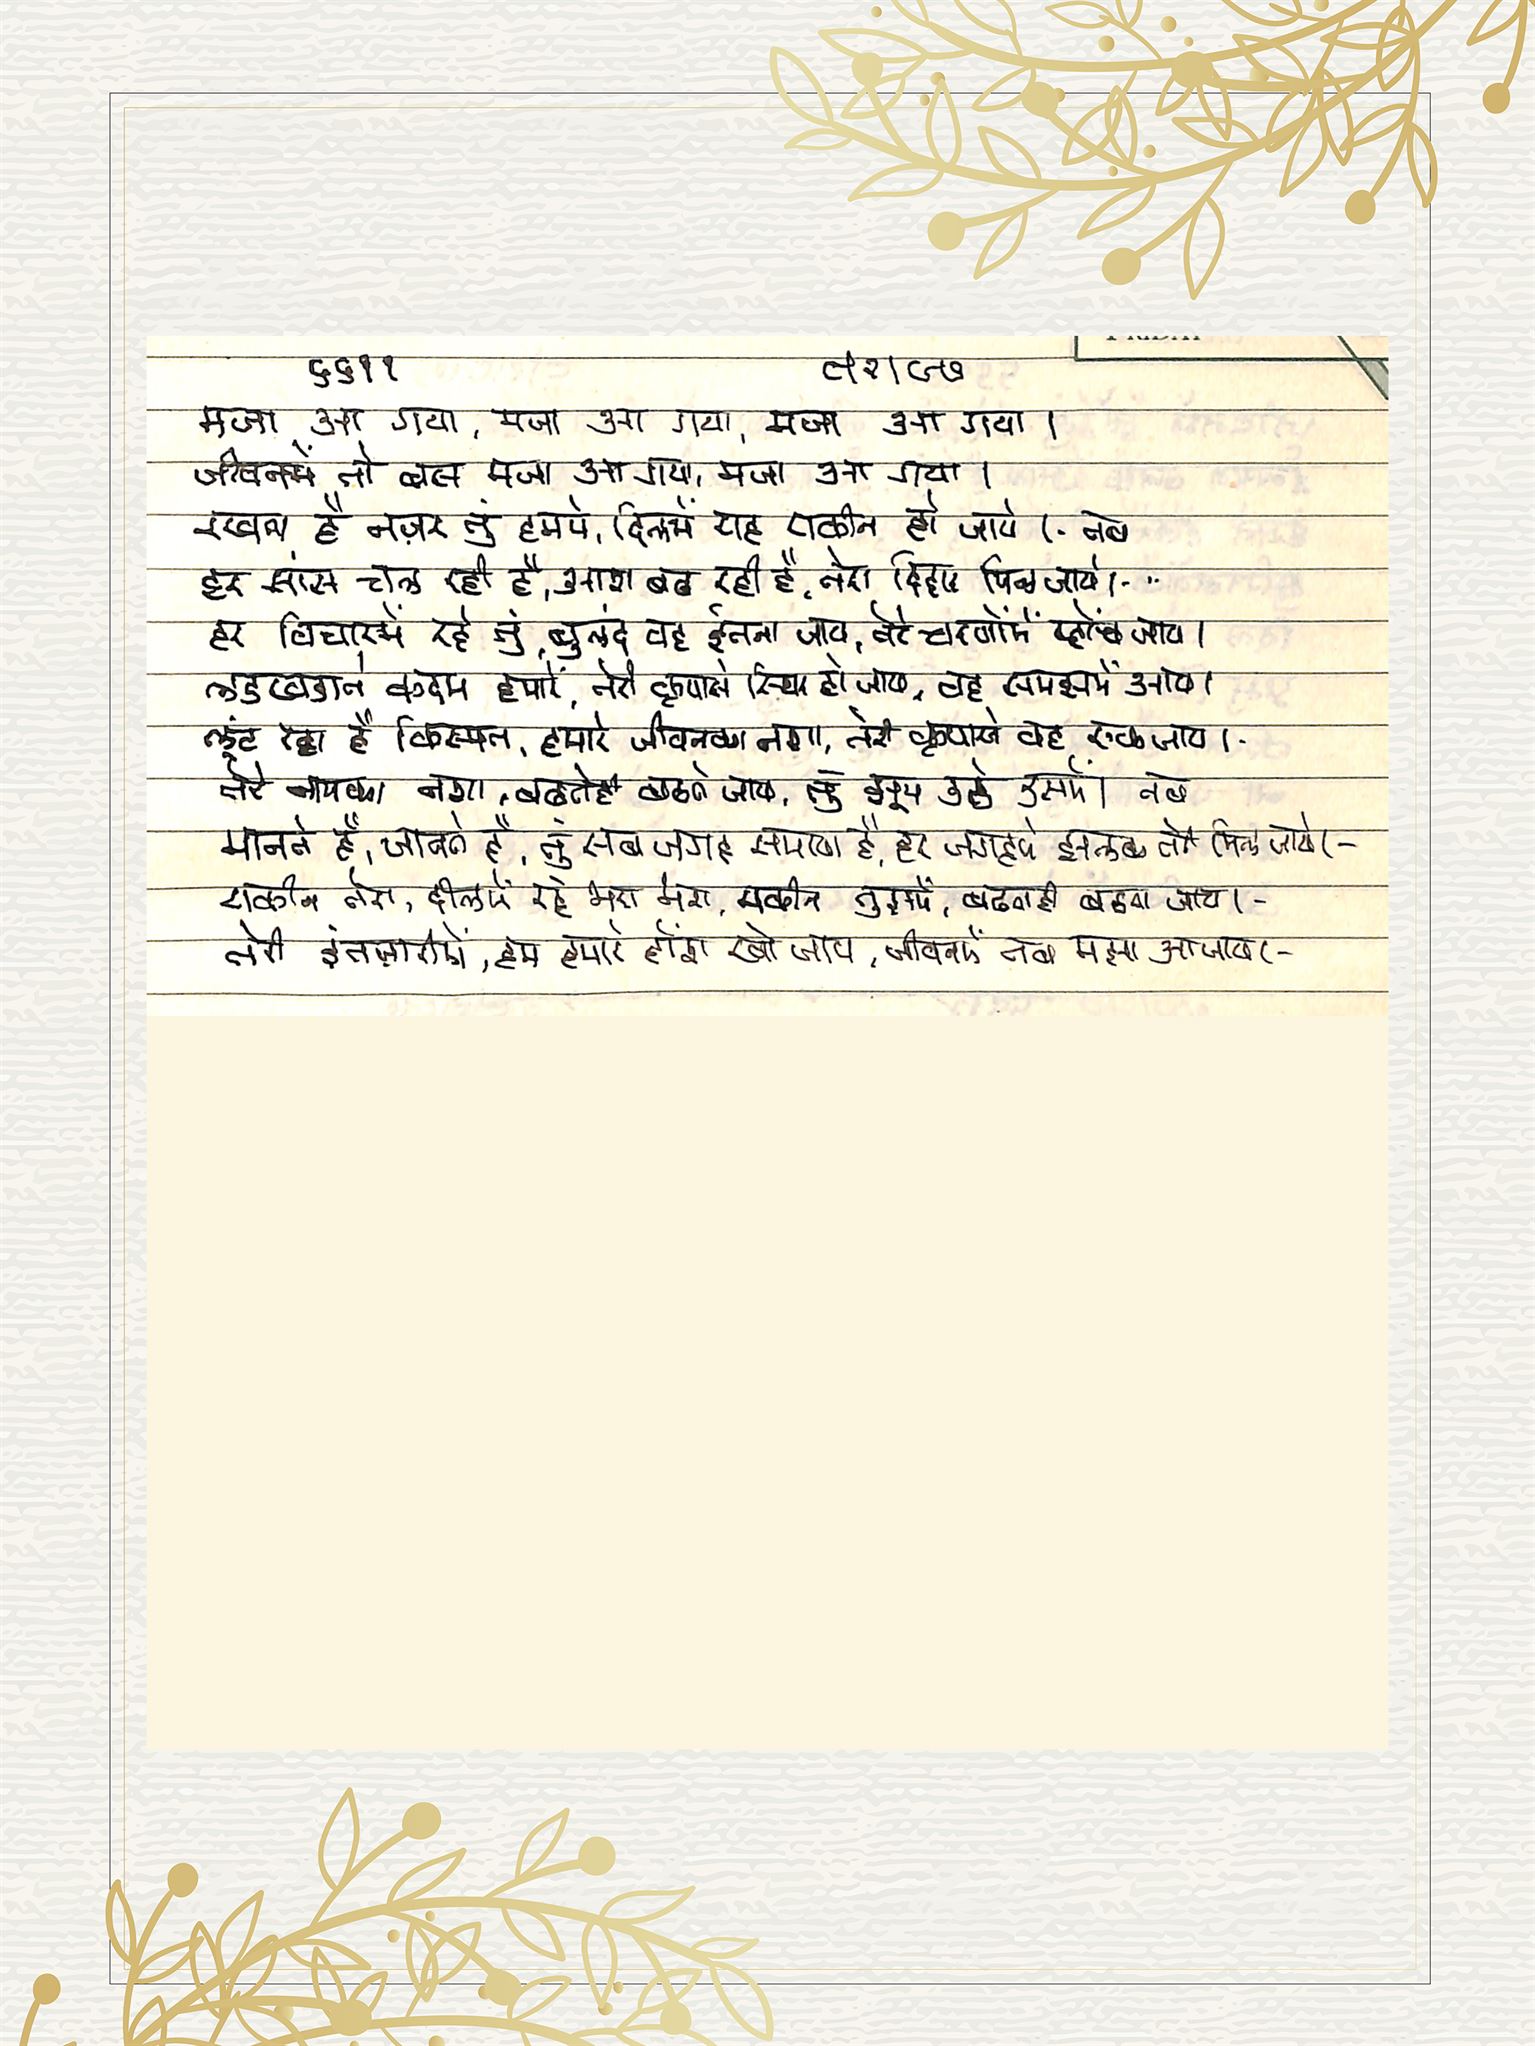 ६६११
FRIDAY
मजा आ गया, मजा आ गया, मजा आ गया।
जीवनमें तो बस मजा आ गया, मजा आ गया।
रखता है नज़र तुं हमपे, दिलमें यह यकीन हो जाये।- तब
हर सांस चल रही है, आश बढ रही है, तेरा दिदार मिल जाये।- ..
हर विचारमें रहे तुं, बुलंद वह ईतना जाय, तेरे चरणोंमें पहोंच जाय।
लडखडाते कदम हमारें, तेरी कृपासे स्थिर हो जाय, वह समझमें आय।
लूंट रहा है किस्मत, हमारे जीवनका नशा, तेरी कृपासे वह रुक जाय।-
तेरे नामका नशा, बढतेही बढते जाय, तुं झूम उठे उसमें। तब
मानते है, जानते है, तुं सब जगह समाया है, हर जगहपे झलक तेरी मिल जाये।-
यकीन तेरा, दीलमें रहे भरा भरा, यकीन तुझमें, बढताही बढता जाय।-
तेरी इंतज़ारीमें, हम हमारे होंश खो जाय, जीवनमें तब मझा आ जाय।-